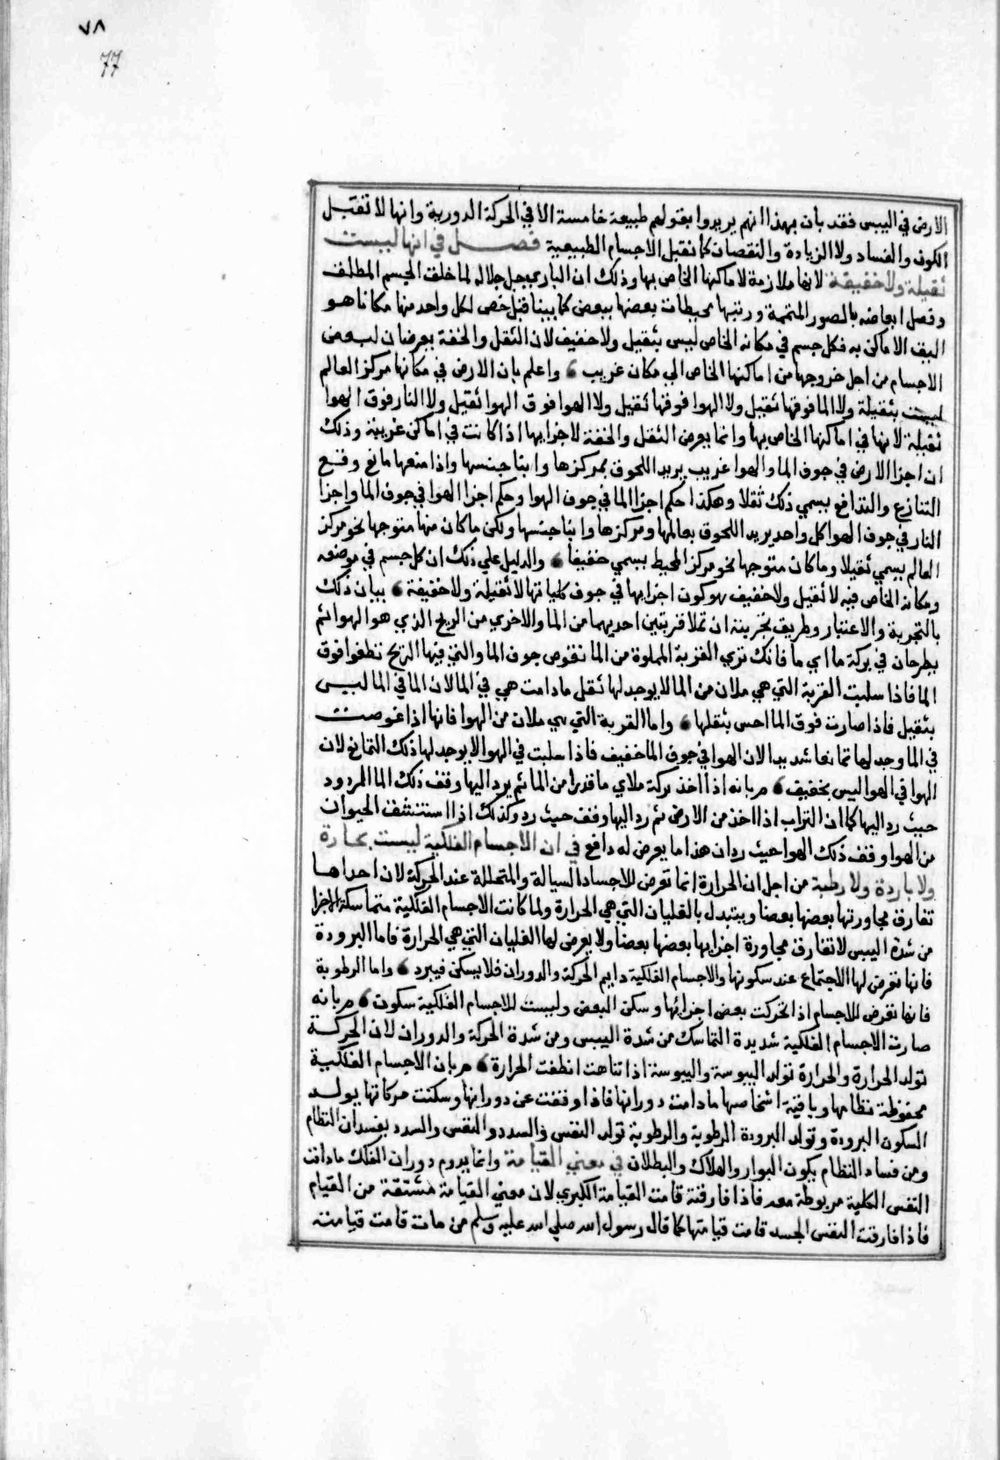 ٧٨
77
الارض في اليبس فقد بان بهذا انهم يريدوا بقولهم طبيعة خامسة الا في الحركة الدورية وانها لا تقبل
الكون والفساد ولا الزيادة والنقصان كما تقبل الاجسام الطبيعية فصل في انها ليست
ثقيلة ولا خفيفة لانها ملازمة لاماكنها الخاص بها وذلك ان الباري جل جلاله لما خلق الجسم المطلق
وفصل ابعاضه بالصور المتممة ورتبها محيطات بعضها ببعض كما بينا قبل خص لكل واحد منها مكانا هو
اليق الاماكن به فكل جسم في مكانه الخاص ليس بثقيل ولا خفيف لان الثقل والخفة يعرضان لبعض
الاجسام من اجل خروجها من اماكنها الخاص الي مكان غريب واعلم بان الارض في مكانها مركز العالم
ليست بثقيلة ولا الما فوقها ثقيل ولا الهوا فوقها ثقيل ولا الهوا فوق الهوا ثقيل ولا النار فوق الهوا
ثقيلة لانها في اماكنها الخاص بها وانما يعرض الثقل والخفة لاجزايها اذا كانت في اماكن غريبة وذلك
ان اجزا الارض في جوف الما والهوا غريب يريد اللحوق بمركزها وابنا جنسها واذا منعها مانع وقع
التنازع والتدافع يسمي ذلك ثقلا وهكذا حكم اجزا الما في جوف الهوا وحكم اجزا الهوا في جوف الما واجزا
النار في جوف الهوا كل واحد يريد اللحوق بعالمها ومركزها وابنا جنسها ولكن ما كان منها متوجها نحو مركز
العالم يسمي ثقيلا وما كان متوجها نحو مركز المحيط يسمي خفيفا والدليل علي ذلك ان كل جسم في موضعه
ومكانه الخاص فيه لا ثقيل ولا خفيف هو كون اجزايها في جوف كلياتها لا ثقيلة ولا خفيفة بيان ذلك
بالتجربة والاعتبار وطريق تجربته ان تملا قربتين احديهما من الما والاخري من الريح الذي هو الهوا ثم
يطرحان في بركة ما اي ما فانك تري القربة المملوة من الما تغوص جوف الما والتي فيها الريح تطفوا فوق
الما فاذا سلبت القربة التي هي ملان من الما لا يوجد لها ثقل مادامت هي في الما لان الما في الما ليس
بثقيل فاذا صارت فوق الما احس بثقلها واما القربة التي هي ملان من الهوا فانها اذا غوصت
في الما وجد لها تمانعا شديدا لان الهوا في جوف الما خفيف فاذا سلبت في الهوا لا يوجد لها ذلك التمانع لان
الهوا في الهوا ليس بخفيف مريانه اذا اخذ بركة ملاي ما قدرا من الما ثم يرد اليها وقف ذلك الما المردود
حيث رد اليها كما ان التراب اذا اخذ من الارض ثم رد اليها وقف حيث رد وكذلك اذا استنشق الحيوان
من الهوا وقف ذلك الهوا حيث رد ان هذا ما يعرض له دافع في ان الاجسام الفلكية ليست بحارة
ولا باردة ولا رطبة من اجل ان الحرارة انما تعرض للاجساد السيالة والمتحللة عند الحركة لان احداها
تفارق مجاورتها بعضها بعضا ويتبدل بالغليان التي هي الحرارة ولما كانت الاجسام الفلكية متماسكة الاجزا
من شدة اليبس لا تفارق مجاورة اجزايها بعضها بعضا ولا يعرض لها الغليان التي هي الحرارة فاما البرودة
فانها تعرض لها الاجتماع عند سكونها والاجسام الفلكية دايم الحركة والدوران فلا يسكن فيبرد واما الرطوبة
فانها تعرض للاجسام اذا تحركت بعض اجزائها وسكن البعض وليست للاجسام الفلكية سكون مريانه
صارت الاجسام الفلكية شديدة التماسك من شدة اليبس ومن شدة الحركة والدوران لان الحركة
تولد الحرارة والحرارة تولد اليبوسة واليبوسة اذا تناهت انطفت الحرارة مريان الاجسام الفلكية
محفوظة نظامها وباقية اشخاصها مادامت دورانها فاذا وقفت عن دورانها وسكنت حركاتها يولد
السكون البرودة وتولد البرودة الرطوبة والرطوبة تولد النفس والسدد والنفس والسدد يفسدان النظام
ومن فساد النظام يكون البوار والهلاك والبطلان في معني القيامة وانما يدوم دوران الفلك مادامت
النفس الكلية مربوطة معه فاذا فارقته قامت القيامة الكبري لان معني القيامة مشتقة من القيام
فاذا فارقت النفس الجسد قامت قيامتها كما قال رسول الله صلي الله عليه وسلم من مات قامت قيامته